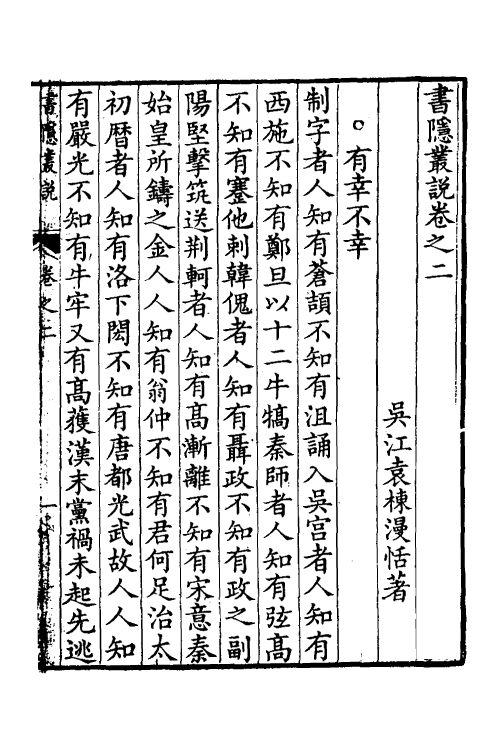 書隱叢説卷之二
吳江袁棟漫恬著
○有幸不幸
制字者人知有蒼頡不知有沮誦入吳宫者人知有
西施不知有鄭旦以十二牛犒秦師者人知有弦髙
不知有蹇他刺韓傀者人知有聶政不知有政之副
陽堅擊筑送荆軻者人知有髙漸離不知有宋意秦
始皇所鑄之金人人知有翁仲不知有君何足治太
初暦者人知有洛下閎不知有唐都光武故人人知
有嚴光不知有牛牢又有髙蒦漢末黨禍未起先逃
書隱叢説
卷之二
一